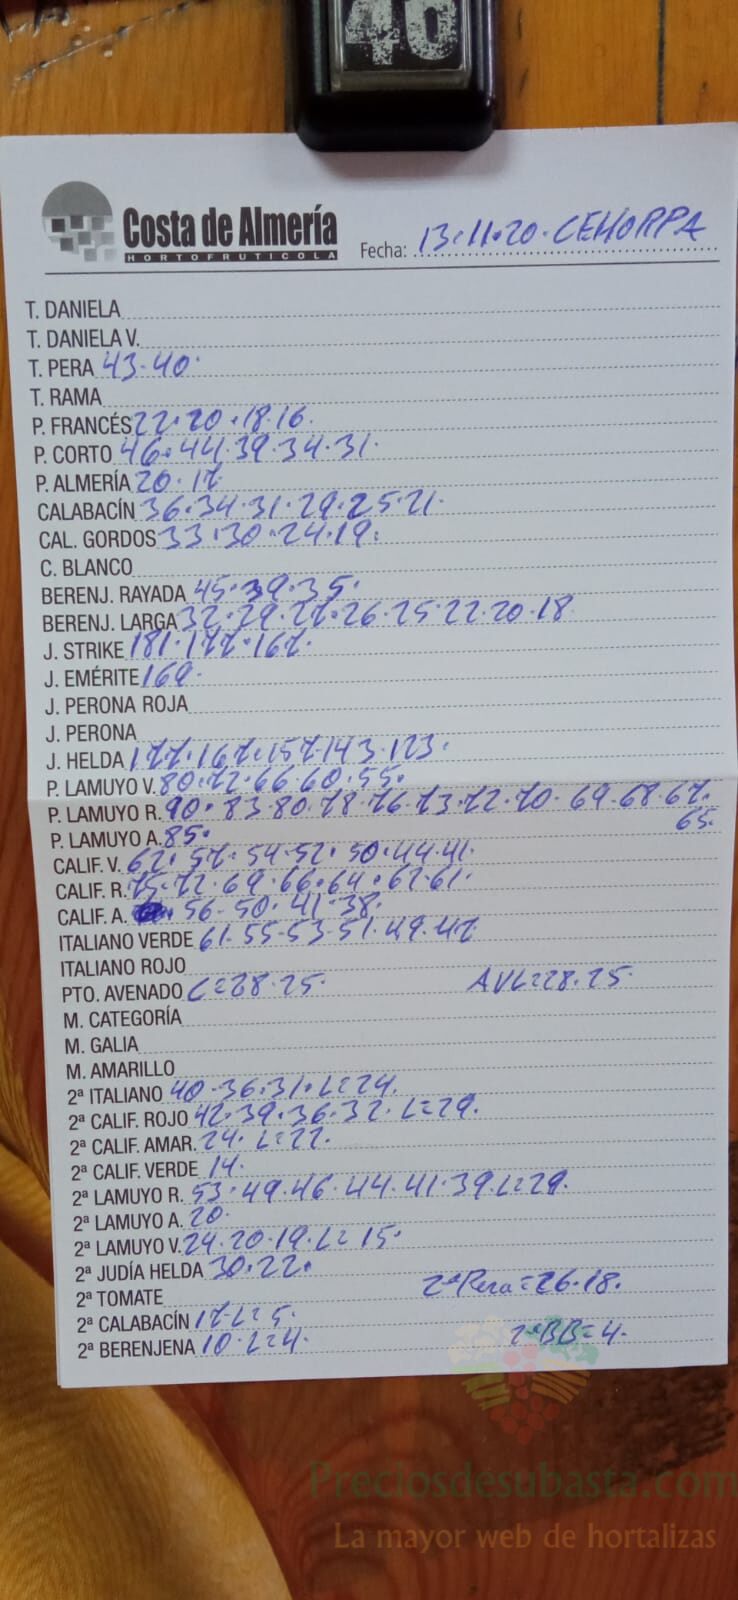 40
Costa de Almería
HORTOFRUTICOLA
Fecha: 13.11.20. CEHORPA
T. DANIELA
T. DANIELA V.
T. PERA 43.40.
T. RAMA
P. FRANCÉS 22.20.18.16.
P. CORTO 46.44.39.34.31.
P. ALMERÍA 20.17
CALABACÍN 36.34.31.29.25.21.
CAL. GORDOS 33.30.24.19.
C. BLANCO
BERENJ. RAYADA 45.39.35.
BERENJ. LARGA 32.29.27.26.25.22.20.18
J. STRIKE 181.177.167.
J. EMÉRITE 169.
J. PERONA ROJA
J. PERONA
J. HELDA 177.167.157.143.123.
P. LAMUYO V. 80.72.66.60.55.
P. LAMUYO R. 90.83.80.78.76.73.72.70.69.68.67.
65.
P. LAMUYO A. 85.
CALIF. V. 62.57.54.52.50.44.41.
CALIF. R. 75.72.69.66.64.62.61.
CALIF. A. 56.50.41.38.
ITALIANO VERDE 61.55.53.51.49.47
ITALIANO ROJO
PTO. AVENADO L=28.25. AVL=28.25.
M. CATEGORÍA
M. GALIA
M. AMARILLO
2ª ITALIANO 40.36.31.L=24.
2ª CALIF. ROJO 42.39.36.32.L=29.
2ª CALIF. AMAR. 24.L=22.
2ª CALIF. VERDE 14.
2ª LAMUYO R. 53.49.46.44.41.39.L=29.
2ª LAMUYO A. 20.
2ª LAMUYO V. 24.20.19.L=15.
2ª JUDÍA HELDA 30.22.
2ª TOMATE 2ªPera=26.18.
2ª CALABACÍN 17.L=5.
2ª BERENJENA 10.L=4. 2ªBB=4.
Preciosdesubasta.com
La mayor web de hortalizas